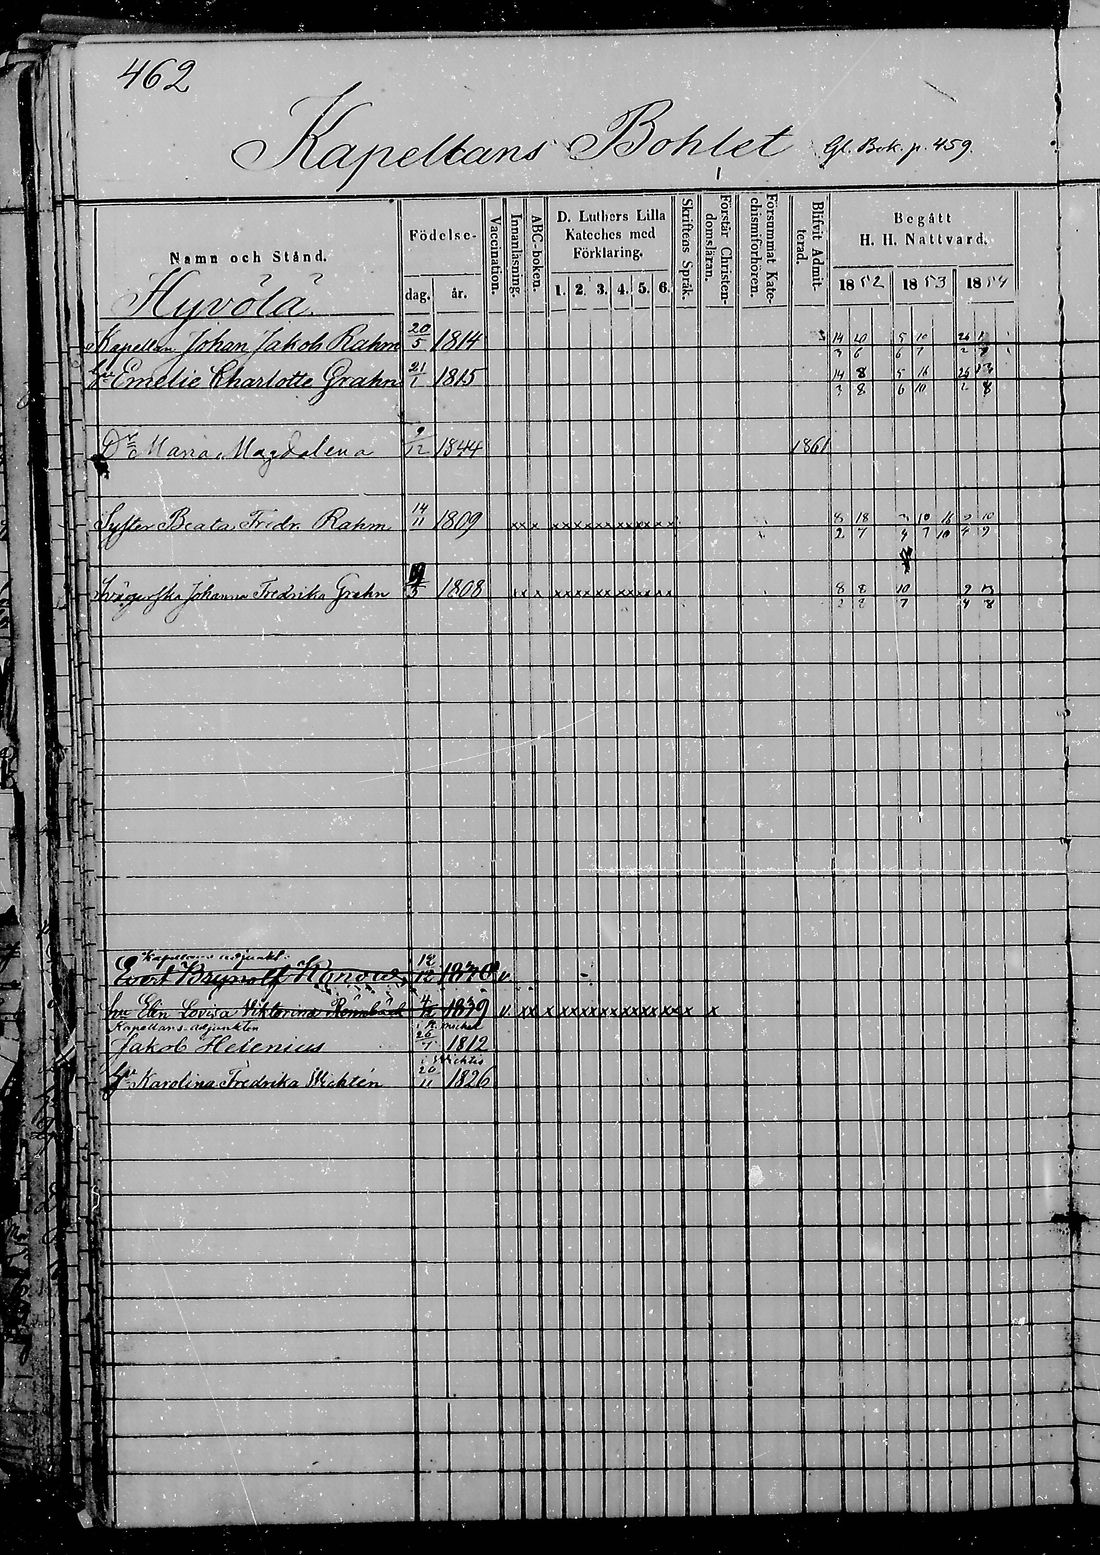 462
Kapellans Bohlet Gl. Bok. p. 459.
Namn och Stånd.
Födelse-
dag. år.
Vaccination.
Innanläsning.
ABC-boken.
D. Luthers Lilla
Kateches med
Förklaring.
1. 2. 3. 4. 5. 6.
Skriftens Språk.
Förstår Christen-
domsläran.
Försummat Kate-
chismiförhören.
Blifvit Admit-
terad.
Begått
H. H. Nattvard.
1852 1853 1854
Hyvölä.
Kapellan Johan Jakob Rahm 20/5 1814
hu Emelie Charlotte Grahn 21/1 1815
Dr Maria Magdalena 9/12 1844 1861
Syster Beata Fredr. Rahm 14/11 1809 x x x x x x x x x x x x x x x
Svägerska Johanna Fredrika Grahn 1808 x x x x x x x x x x x x x x x
Kapellans adjunkt.
Evert Brynolf 12/12 v
hu Elin Lovisa Viktorina Rönnbäck 1839 v xx x x x x x x x x x x x x x x x
Kapellans adjunkten
Jakob Helenius 26/7 1812
i Wichtis
hu Karolina Fredrika Wichtén 20/11 1826